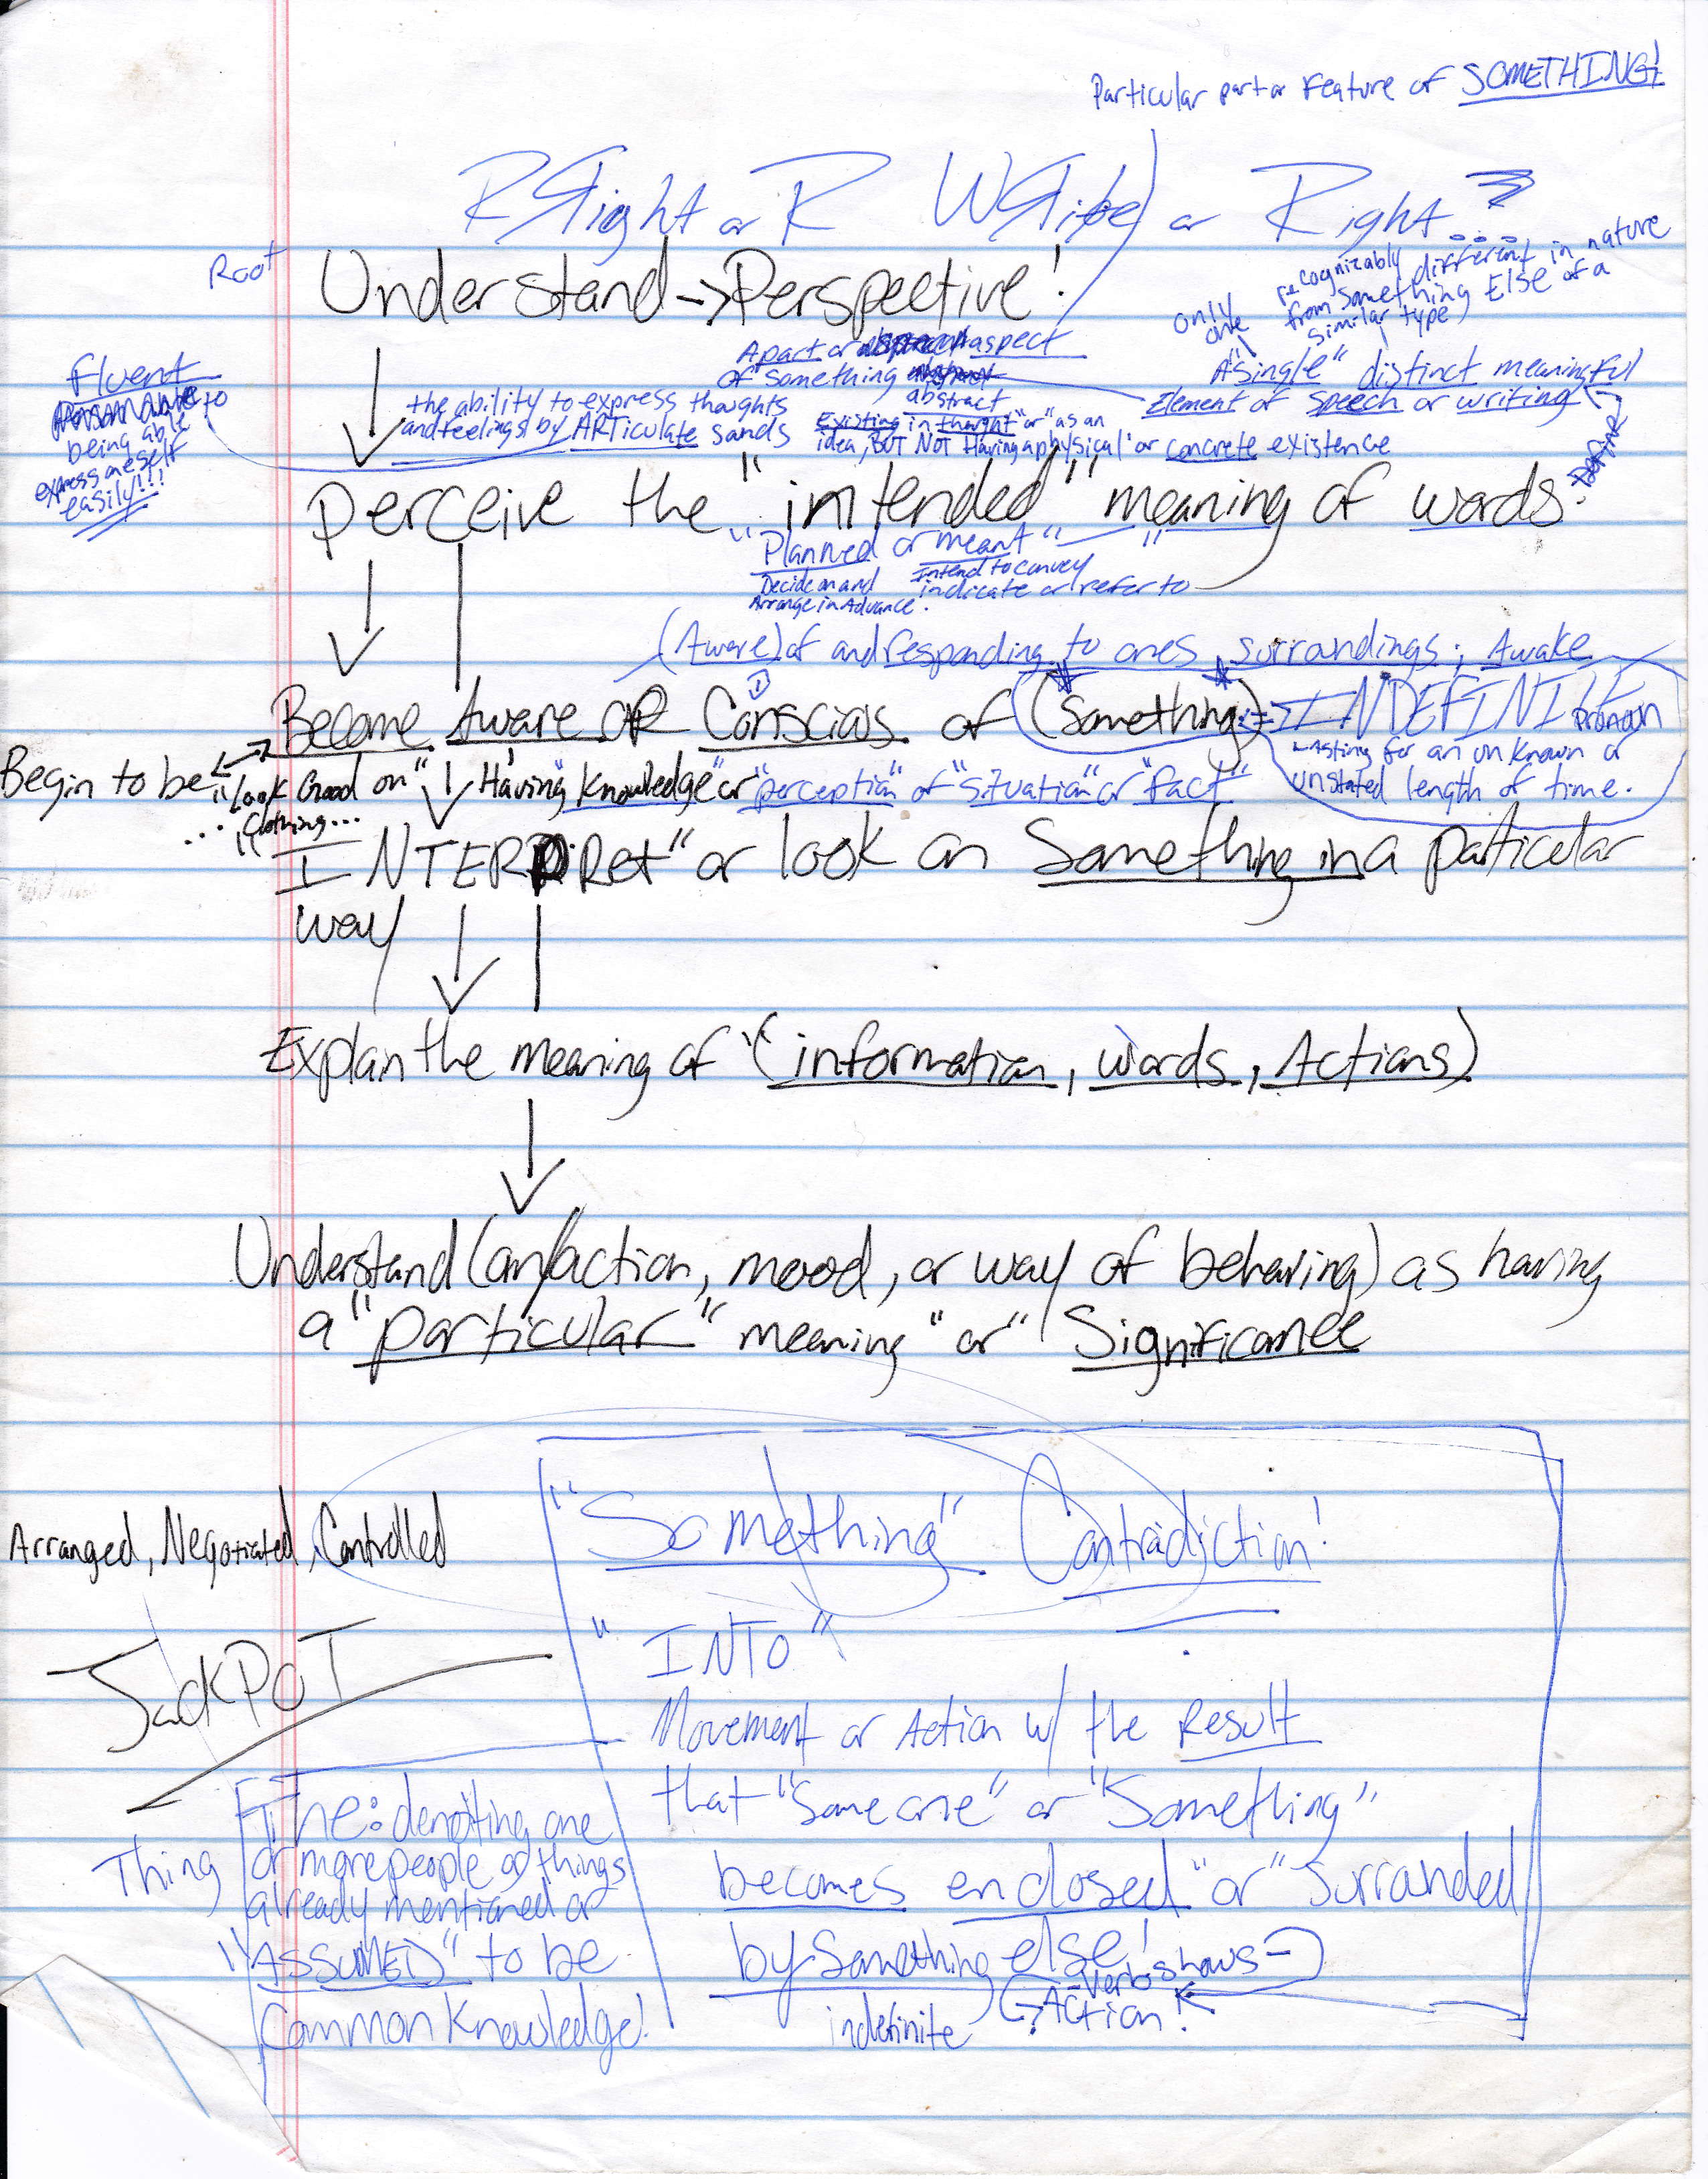 Particular part or Feature of SOMETHING!
Right or R Write or Right...?
Root
Understand -> Perspective!
only one
recognizably different in nature
from something Else of a
similar type
Apart or aspect
of something
abstract
Existing in thought "or" as an
idea, BUT NOT Having a physical or concrete existence
A "single" distinct meaningful
Element of speech or writing
Define
Fluent
to
being able
express oneself
easily!!!
the ability to express thoughts
and feelings by ARTiculate sands
perceive the "intended" meaning of words.
"Planned or meant"
Decide on and
Arrange in Advance.
Intend to convey
indicate or refer to
(Aware) of and responding to ones surroundings; Awake
Become Aware OR Conscious of (Something) INDEFINITE pronoun
Lasting for an unknown or
unstated length of time.
Begin to be
"Look Good on"
Clothing...
Having "knowledge" or "perception" of "situation" or "fact"
INTERPRet" or look on Something in a particular
way
Explan the meaning of "(information, words, Actions)
Understand (an/action, mood, or way of behaving) as having
a "particular" meaning "or" Significance
Arranged, Negotiated, Controlled
JackPOT
"Something" Contradiction!
"INTO"
Movement or Action w/ the Result
that "Some one" or "Something"
becomes enclosed "or" Surranded
by Something else!
indefinite
Verb shows
Action!
Thing
The: denoting one
or more people or things
already mentioned or
"ASSUMED" to be
Common Knowledge!